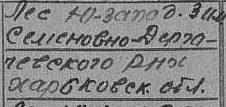 Лес Ю-Запад. 3 км
Семеновно-Дерга-
чевского р-на
Харьковск обл.